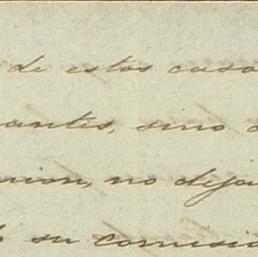 de estos caso
antes, sino
nion, no deja
su comisio